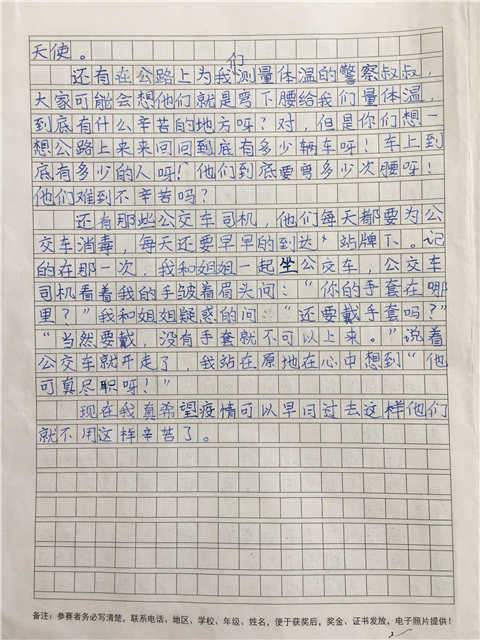 天使。
还有在公路上为我们测量体温的警察叔叔，
大家可能会想他们就是弯下腰给我们量体温，
到底有什么辛苦的地方呀？对，但是你们想一
想公路上来来回回到底有多少辆车呀！车上到
底有多少的人呀！他们到底要弯多少次腰呀！
他们难到不辛苦吗？
还有那些公交车司机，他们每天都要为公
交车消毒，每天还要早早的到达站牌下。记
的在那一次，我和姐姐一起坐公交车，公交车
司机看着我的手皱着眉头问：“你的手套在哪
里？”我和姐姐疑惑的问：“还要戴手套吗？”
“当然要戴，没有手套就不可以上来。”说着
公交车就开走了，我站在原地在心中想到“他
可真尽职呀！”
现在我真希望疫情可以早日过去这样他们
就不用这样辛苦了。
备注：参赛者务必写清楚，联系电话、地区、学校、年级、姓名，便于获奖后，奖金、证书发放，电子照片提供！